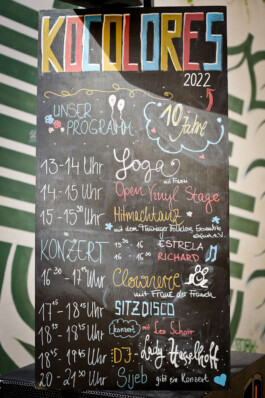 KOCOLORES
2022
UNSER
PROGRAMM
10 Jahre
13-14 Uhr Yoga
14-15 Uhr Open Vinyl Stage
15-15³⁰ Uhr Mitmachtanz
mit dem Thüringer Folklore Ensemble
KONZERT ESTRELA
RICHARD
16³⁰ - 17 Uhr Clownerie
mit Frau
17⁴⁵ - 18 Uhr SITZDISCO
18 - 18⁴⁵ Uhr Konzert mit Leo Schöir
18⁴⁵ - 19⁴⁵ Uhr DJ: Lady Hesselhoff
20 - 21³⁰ Uhr Sijeb gibt ein Konzert